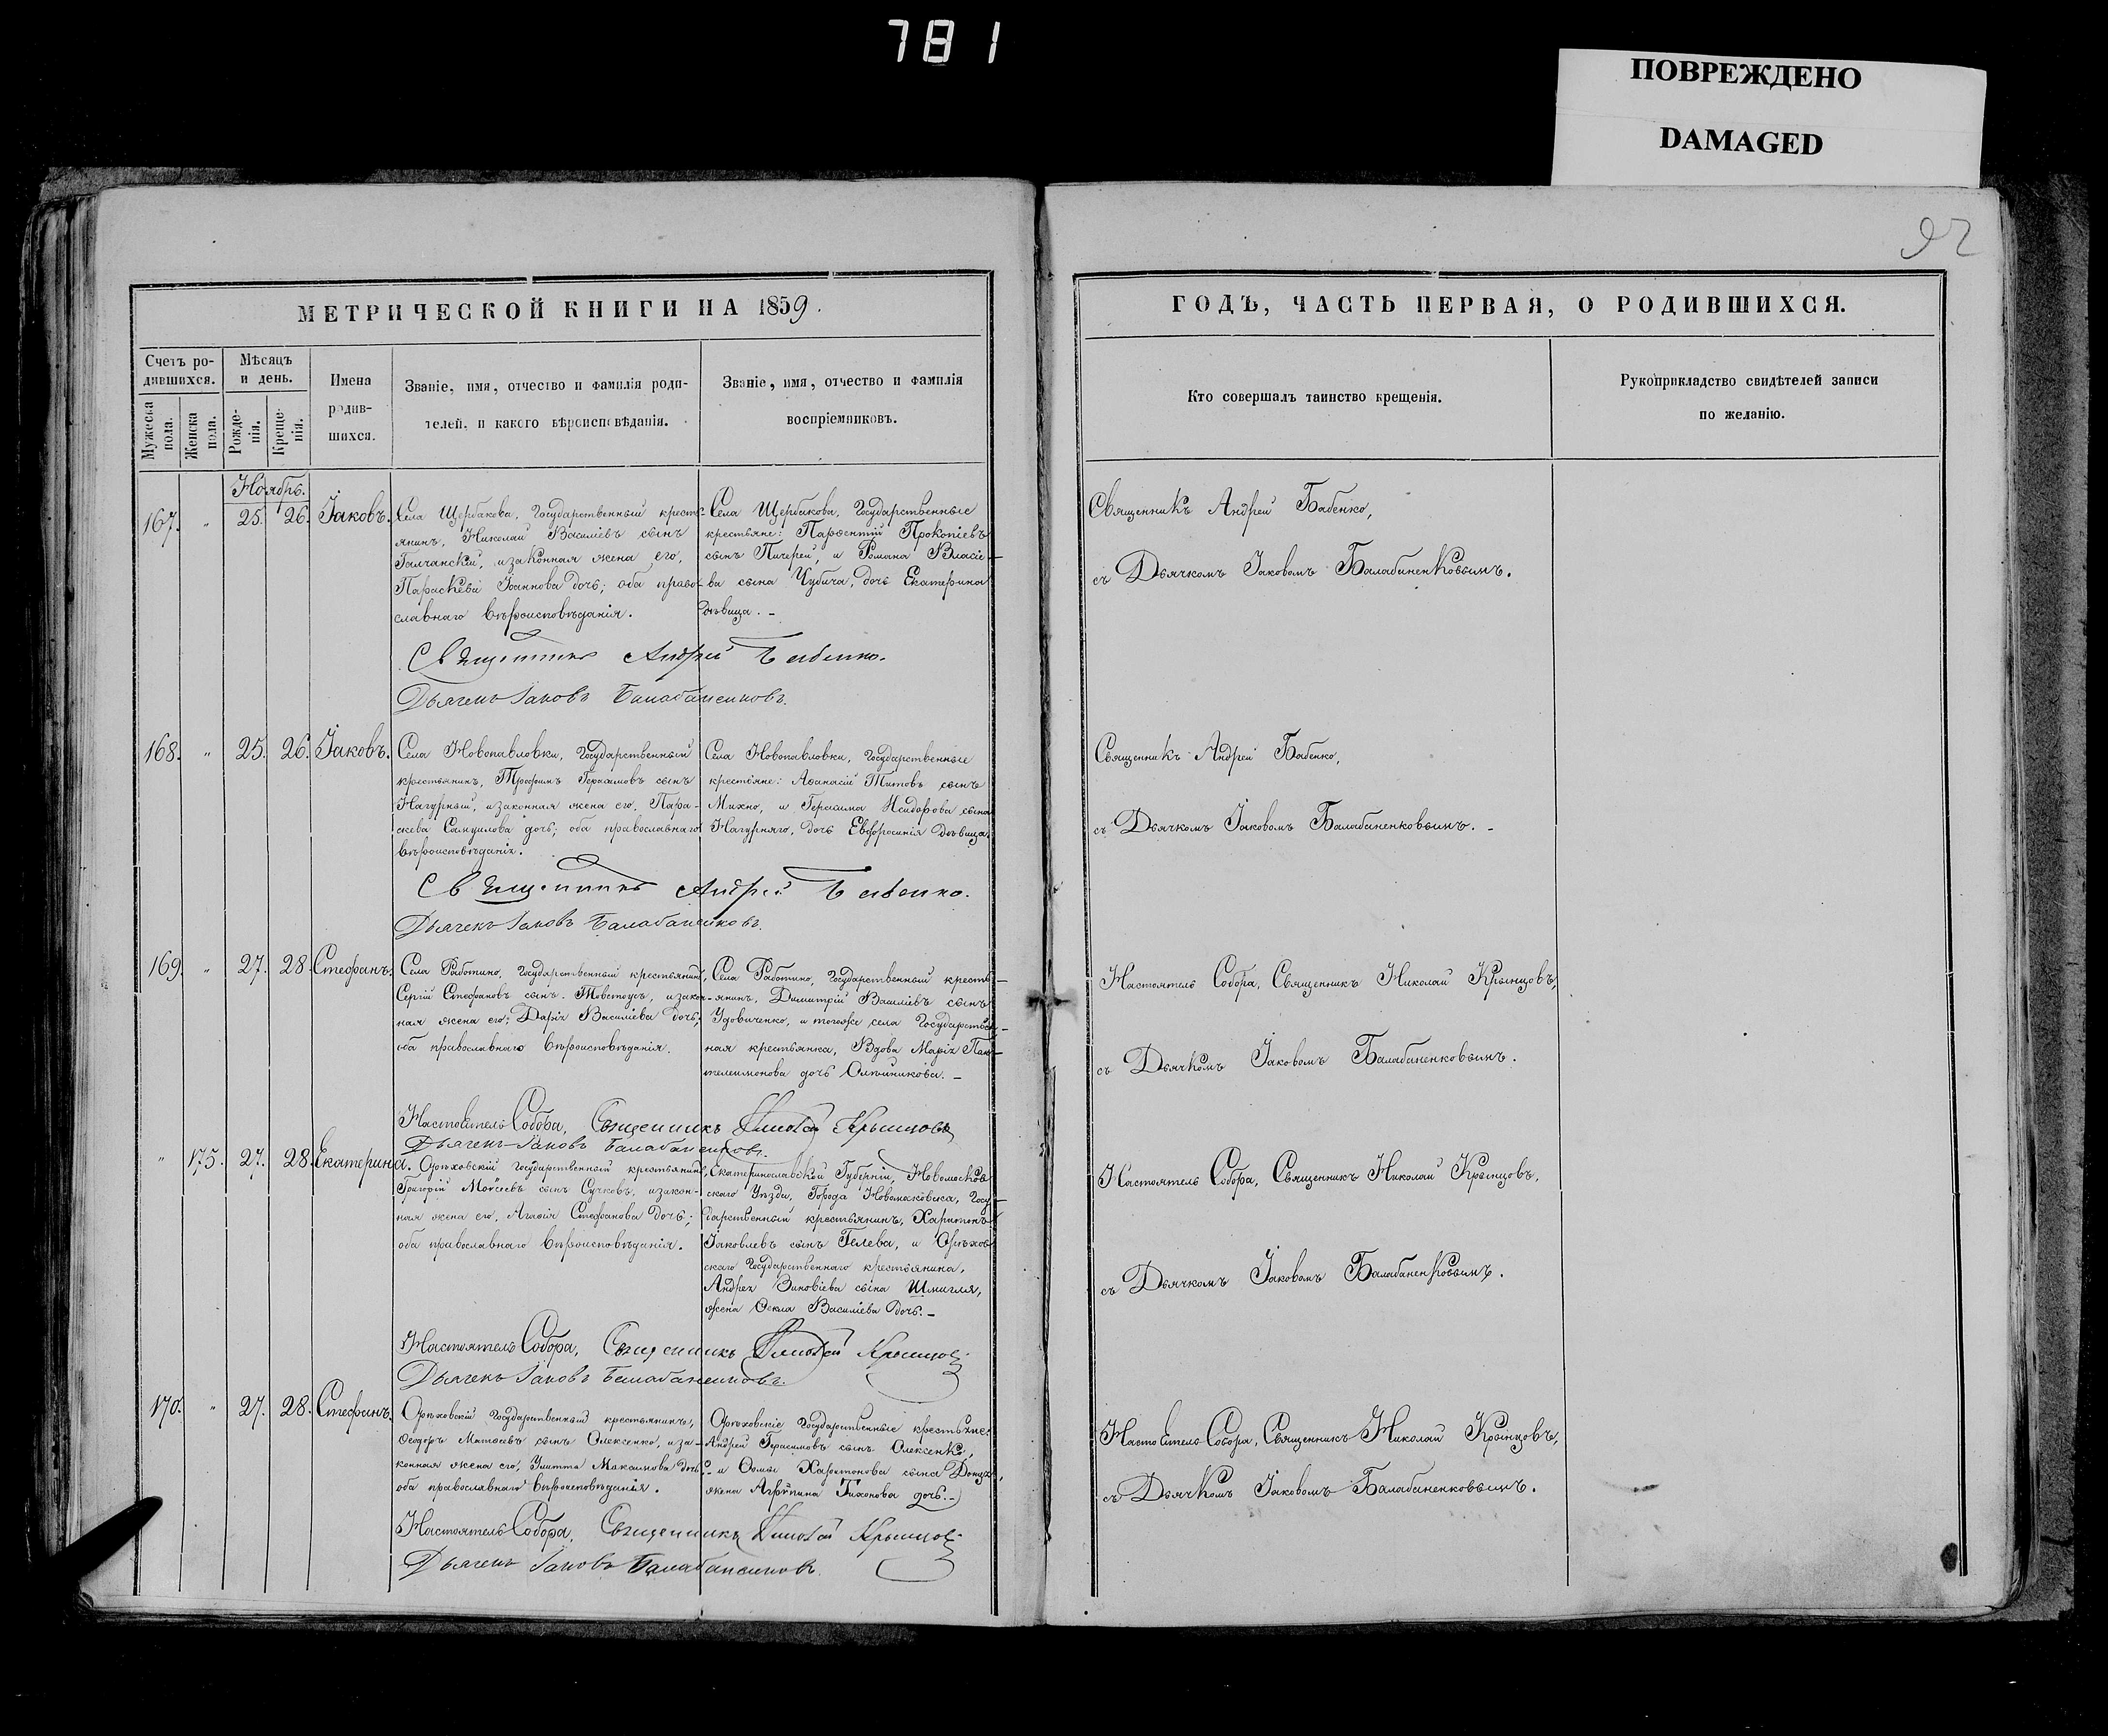 781
ПОВРЕЖДЕНО
DAMAGED
92
МЕТРИЧЕСКОЙ КНИГИ НА 1859.
Счетъ ро-
дившихся.
Мужеска
пола.
Женска
пола.
Мѣсяцъ
и день.
Рожде-
нія.
Креще-
нія.
Имена
родив-
шихся.
Званіе, имя, отчество и фамилія роди-
телей, и какого вѣроисповѣданія.
Званіе, имя, отчество и фамилія
воспріемниковъ.
Ноябрь.
167. „ 25. 26. Іаковъ.
Села Щербакова, Государственный кресть-
янинъ, Николай Василіевъ сынъ
Галчанскій, и законная жена его,
Параскева Іоаннова дочь; оба право-
славнаго вѣроисповѣданія.
Села Щербакова, Государственные
крестьяне: Парѳентій Прокопіевъ
сынъ Пичерей, и Романа Власіе-
ва сына Чубича, дочь Екатерина
Дѣвица. –
Священникъ Андрей Бабенко.
Дьячекъ Іаковъ Балабаненковъ.
168. „ 25. 26. Іаковъ.
Села Новопавловки, Государственный
крестьянинъ, Трофимъ Герасимовъ сынъ
Нагурный, и законная жена его, Пара-
скева Самуилова дочь; оба православнаго
вѣроисповѣданія.
Села Новопавловки, Государственные
крестьяне: Аѳанасій Титовъ сынъ
Михно, и Герасима Исидорова сына
Нагурняго, дочь Евфросинія Дѣвица.
Священникъ Андрей Бабенко.
Дьячекъ Іаковъ Балабаненковъ.
169. „ 27. 28. Стефанъ.
Села Работино, Государственный крестьянинъ,
Сергій Стефановъ сынъ Товстоусъ, и закон-
ная жена его, Дарія Василіева дочь;
оба православнаго вѣроисповѣданія.
Села Работино, Государственный кресть-
янинъ, Димитрій Василіевъ сынъ
Удовиченко, и тогоже села Государствен-
ная крестьянка, Вдова Марія Пан-
телеимонова дочь Олѣйникова. –
Настоятель Собора, Священникъ Николай Крынцовъ
Дьячекъ Іаковъ Балабаненковъ.
„ 175. 27. 28. Екатерина.
Орѣховскій Государственный крестьянинъ,
Григорій Мойсеевъ сынъ Сучковъ, и закон-
ная жена его, Агафія Стефанова дочь;
оба православнаго вѣроисповѣданія.
Екатеринославской Губерніи, Новомосков-
скаго Уѣзда, Города Новомосковска, Госу-
дарственный крестьянинъ, Харитонъ
Іаковлевъ сынъ Гелева, и Орѣхов-
скаго Государственнаго крестьянина,
Андрея Зиновіева сына Шмигля,
жена Ѳекла Василіева дочь. –
Настоятель Собора, Священникъ Николай Крынцовъ
Дьячекъ Іаковъ Балабаненковъ.
170. „ 27. 28. Стефанъ.
Орѣховскій Государственный крестьянинъ,
Ѳеодоръ Матѳеевъ сынъ Олексенко, и за-
конная жена его, Улитта Максимова дочь;
оба православнаго вѣроисповѣданія.
Орѣховскіе Государственные крестьяне:
Андрей Герасимовъ сынъ Олексенко,
и Ѳомы Харитонова сына Донця,
жена Агрипина Тихонова дочь. –
Настоятель Собора, Священникъ Николай Крынцовъ
Дьячекъ Іаковъ Балабаненковъ.
ГОДЪ, ЧАСТЬ ПЕРВАЯ, О РОДИВШИХСЯ.
Кто совершалъ таинство крещенія.
Рукоприкладство свидѣтелей записи
по желанію.
Священникъ Андрей Бабенко,
съ Дьячкомъ Іаковомъ Балабаненковымъ.
Священникъ Андрей Бабенко,
съ Дьячкомъ Іаковомъ Балабаненковымъ. –
Настоятель Собора, Священникъ Николай Крынцовъ,
съ Дьячкомъ Іаковомъ Балабаненковымъ.
Настоятель Собора, Священникъ Николай Крынцовъ,
съ Дьячкомъ Іаковомъ Балабаненковымъ.
Настоятель Собора, Священникъ Николай Крынцовъ,
съ Дьячкомъ Іаковомъ Балабаненковымъ.